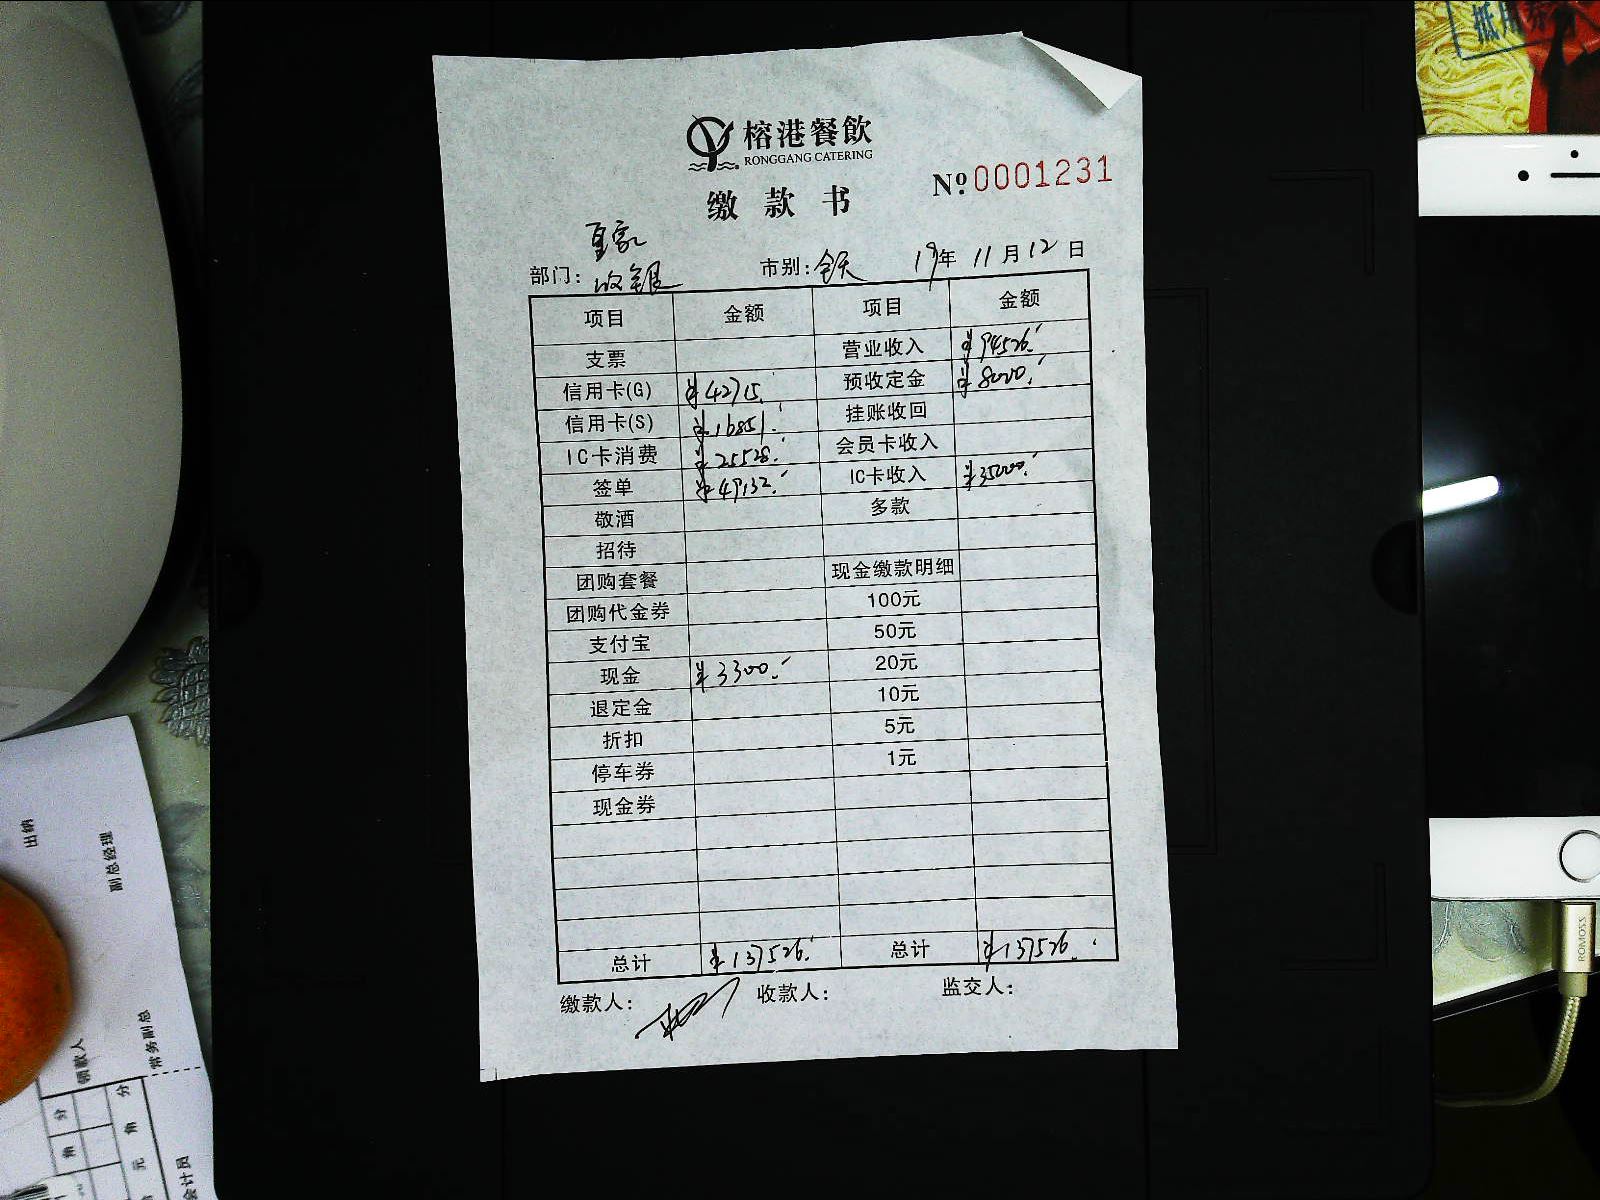 榕港餐飲
RONGGANG CATERING
缴款书
№ 0001231
部门: 收银 市别: 全天 19年 11月12日
项目 金额 项目 金额
支票 营业收入 ¥94526.
信用卡(G) ¥42715. 预收定金 ¥8000.
信用卡(S) ¥16851. 挂账收回
IC卡消费 ¥25528. 会员卡收入
签单 ¥49132. IC卡收入 ¥35000.
敬酒 多款
招待
团购套餐 现金缴款明细
团购代金券 100元
支付宝 50元
现金 ¥3300. 20元
退定金 10元
折扣 5元
停车券 1元
现金券
总计 ¥137526. 总计 ¥137526.
缴款人: 收款人: 监交人:
出纳
副总经理
领款人
常务副总
分
角
分
角
元
会计员
ROMOSS